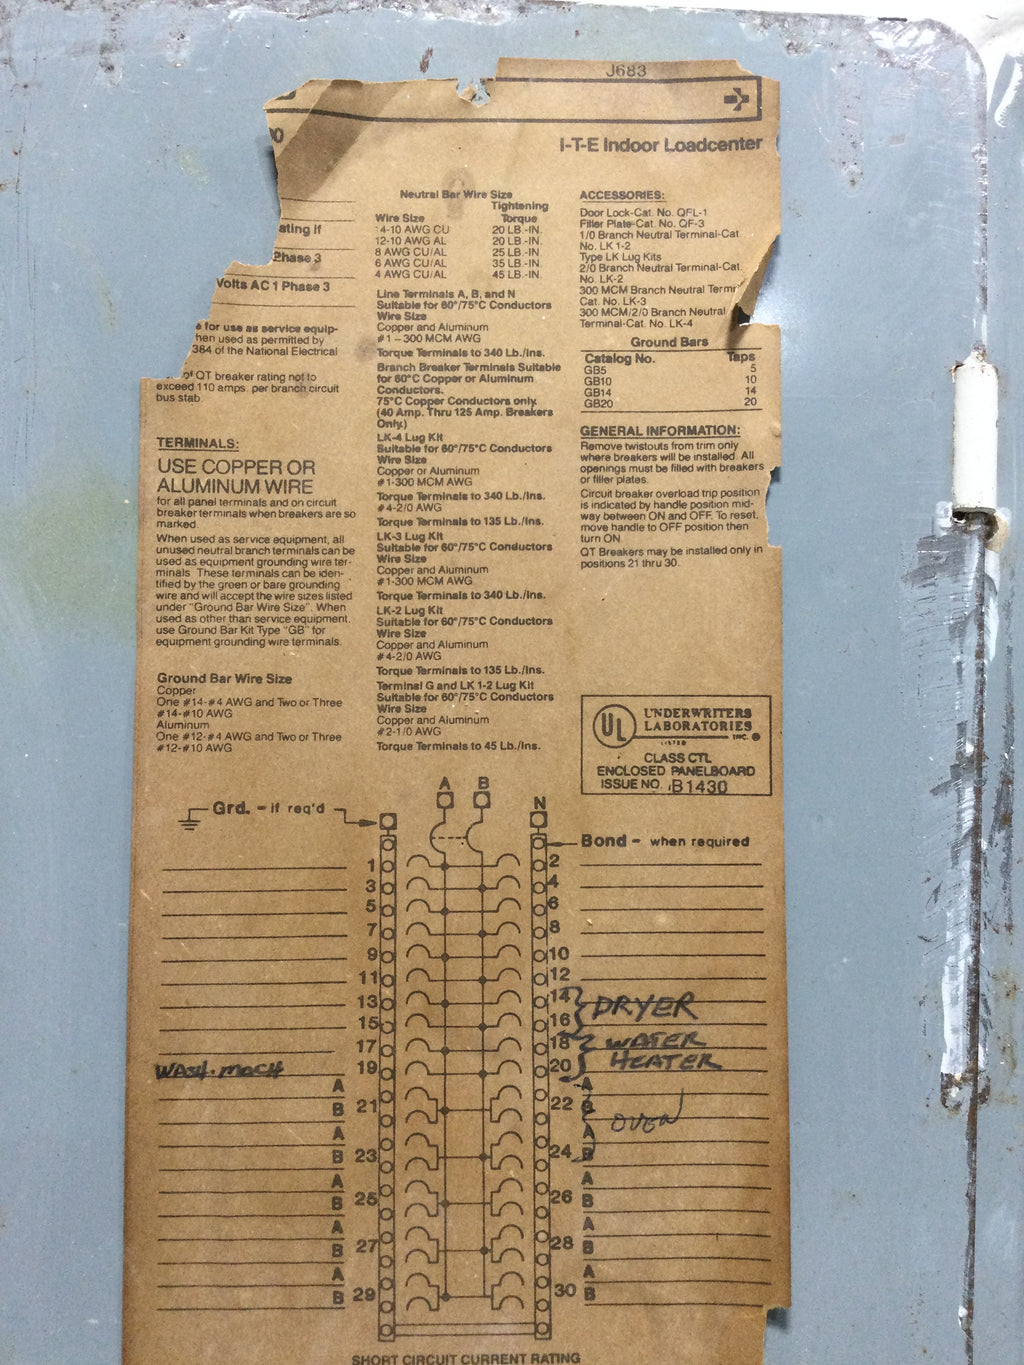 J683
I-T-E Indoor Loadcenter
ating If
Phase 3
Volts AC 1 Phase 3
for use as service equip-
hen used as permitted by
384 of the National Electrical
of QT breaker rating not to
exceed 110 amps. per branch circuit
bus stab
TERMINALS:
USE COPPER OR
ALUMINUM WIRE
for all panel terminals and on circuit
breaker terminals when breakers are so
marked.
When used as service equipment, all
unused neutral branch terminals can be
used as equipment grounding wire ter-
minals. These terminals can be iden-
tified by the green or bare grounding
wire and will accept the wire sizes listed
under "Ground Bar Wire Size". When
used as other than service equipment,
use Ground Bar Kit Type "GB" for
equipment grounding wire terminals.
Ground Bar Wire Size
Copper
One #14-#4 AWG and Two or Three
#14-#10 AWG
Aluminum
One #12-#4 AWG and Two or Three
#12-#10 AWG
Neutral Bar Wire Size
Tightening
Wire Size Torque
14-10 AWG CU 20 LB.-IN.
12-10 AWG AL 20 LB.-IN.
8 AWG CU/AL 25 LB.-IN.
6 AWG CU/AL 35 LB.-IN.
4 AWG CU/AL 45 LB.-IN.
Line Terminals A, B, and N
Suitable for 60°/75°C Conductors
Wire Size
Copper and Aluminum
#1-300 MCM AWG
Torque Terminals to 340 Lb./Ins.
Branch Breaker Terminals Suitable
for 60°C Copper or Aluminum
Conductors.
75°C Copper Conductors only.
(40 Amp. Thru 125 Amp. Breakers
Only.)
LK-4 Lug Kit
Suitable for 60°/75°C Conductors
Wire Size
Copper or Aluminum
#1-300 MCM AWG
Torque Terminals to 340 Lb./Ins.
#4-2/0 AWG
Torque Terminals to 135 Lb./Ins.
LK-3 Lug Kit
Suitable for 60°/75°C Conductors
Wire Size
Copper and Aluminum
#1-300 MCM AWG
Torque Terminals to 340 Lb./Ins.
LK-2 Lug Kit
Suitable for 60°/75°C Conductors
Wire Size
Copper and Aluminum
#4-2/0 AWG
Torque Terminals to 135 Lb./Ins.
Terminal G and LK 1-2 Lug Kit
Suitable for 60°/75°C Conductors
Wire Size
Copper and Aluminum
#2-1/0 AWG
Torque Terminals to 45 Lb./Ins.
ACCESSORIES:
Door Lock-Cat. No. QFL-1
Filler Plate-Cat. No. QF-3
1/0 Branch Neutral Terminal-Cat
No. LK 1-2
Type LK Lug Kits
2/0 Branch Neutral Terminal-Cat.
No. LK-2
300 MCM Branch Neutral Termi
Cat. No. LK-3
300 MCM/2/0 Branch Neutral
Terminal-Cat. No. LK-4
Ground Bars
Catalog No. Taps
GB5 5
GB10 10
GB14 14
GB20 20
GENERAL INFORMATION:
Remove twistouts from trim only
where breakers will be installed. All
openings must be filled with breakers
or filler plates.
Circuit breaker overload trip position
is indicated by handle position mid-
way between ON and OFF. To reset,
move handle to OFF position then
turn ON.
QT Breakers may be installed only in
positions 21 thru 30.
UL
UNDERWRITERS
LABORATORIES
INC. ®
LISTED
CLASS CTL
ENCLOSED PANELBOARD
ISSUE NO. B1430
A B N
Grd. - if req'd
Bond - when required
1 2
3 4
5 6
7 8
9 10
11 12
13 14 DRYER
15 16
17 18 WATER
WASH. MACH 19 20 HEATER
A A
B 21 22 B OVEN
A A
B 23 24 B
A A
B 25 26 B
A A
B 27 28 B
A A
B 29 30 B
SHORT CIRCUIT CURRENT RATING